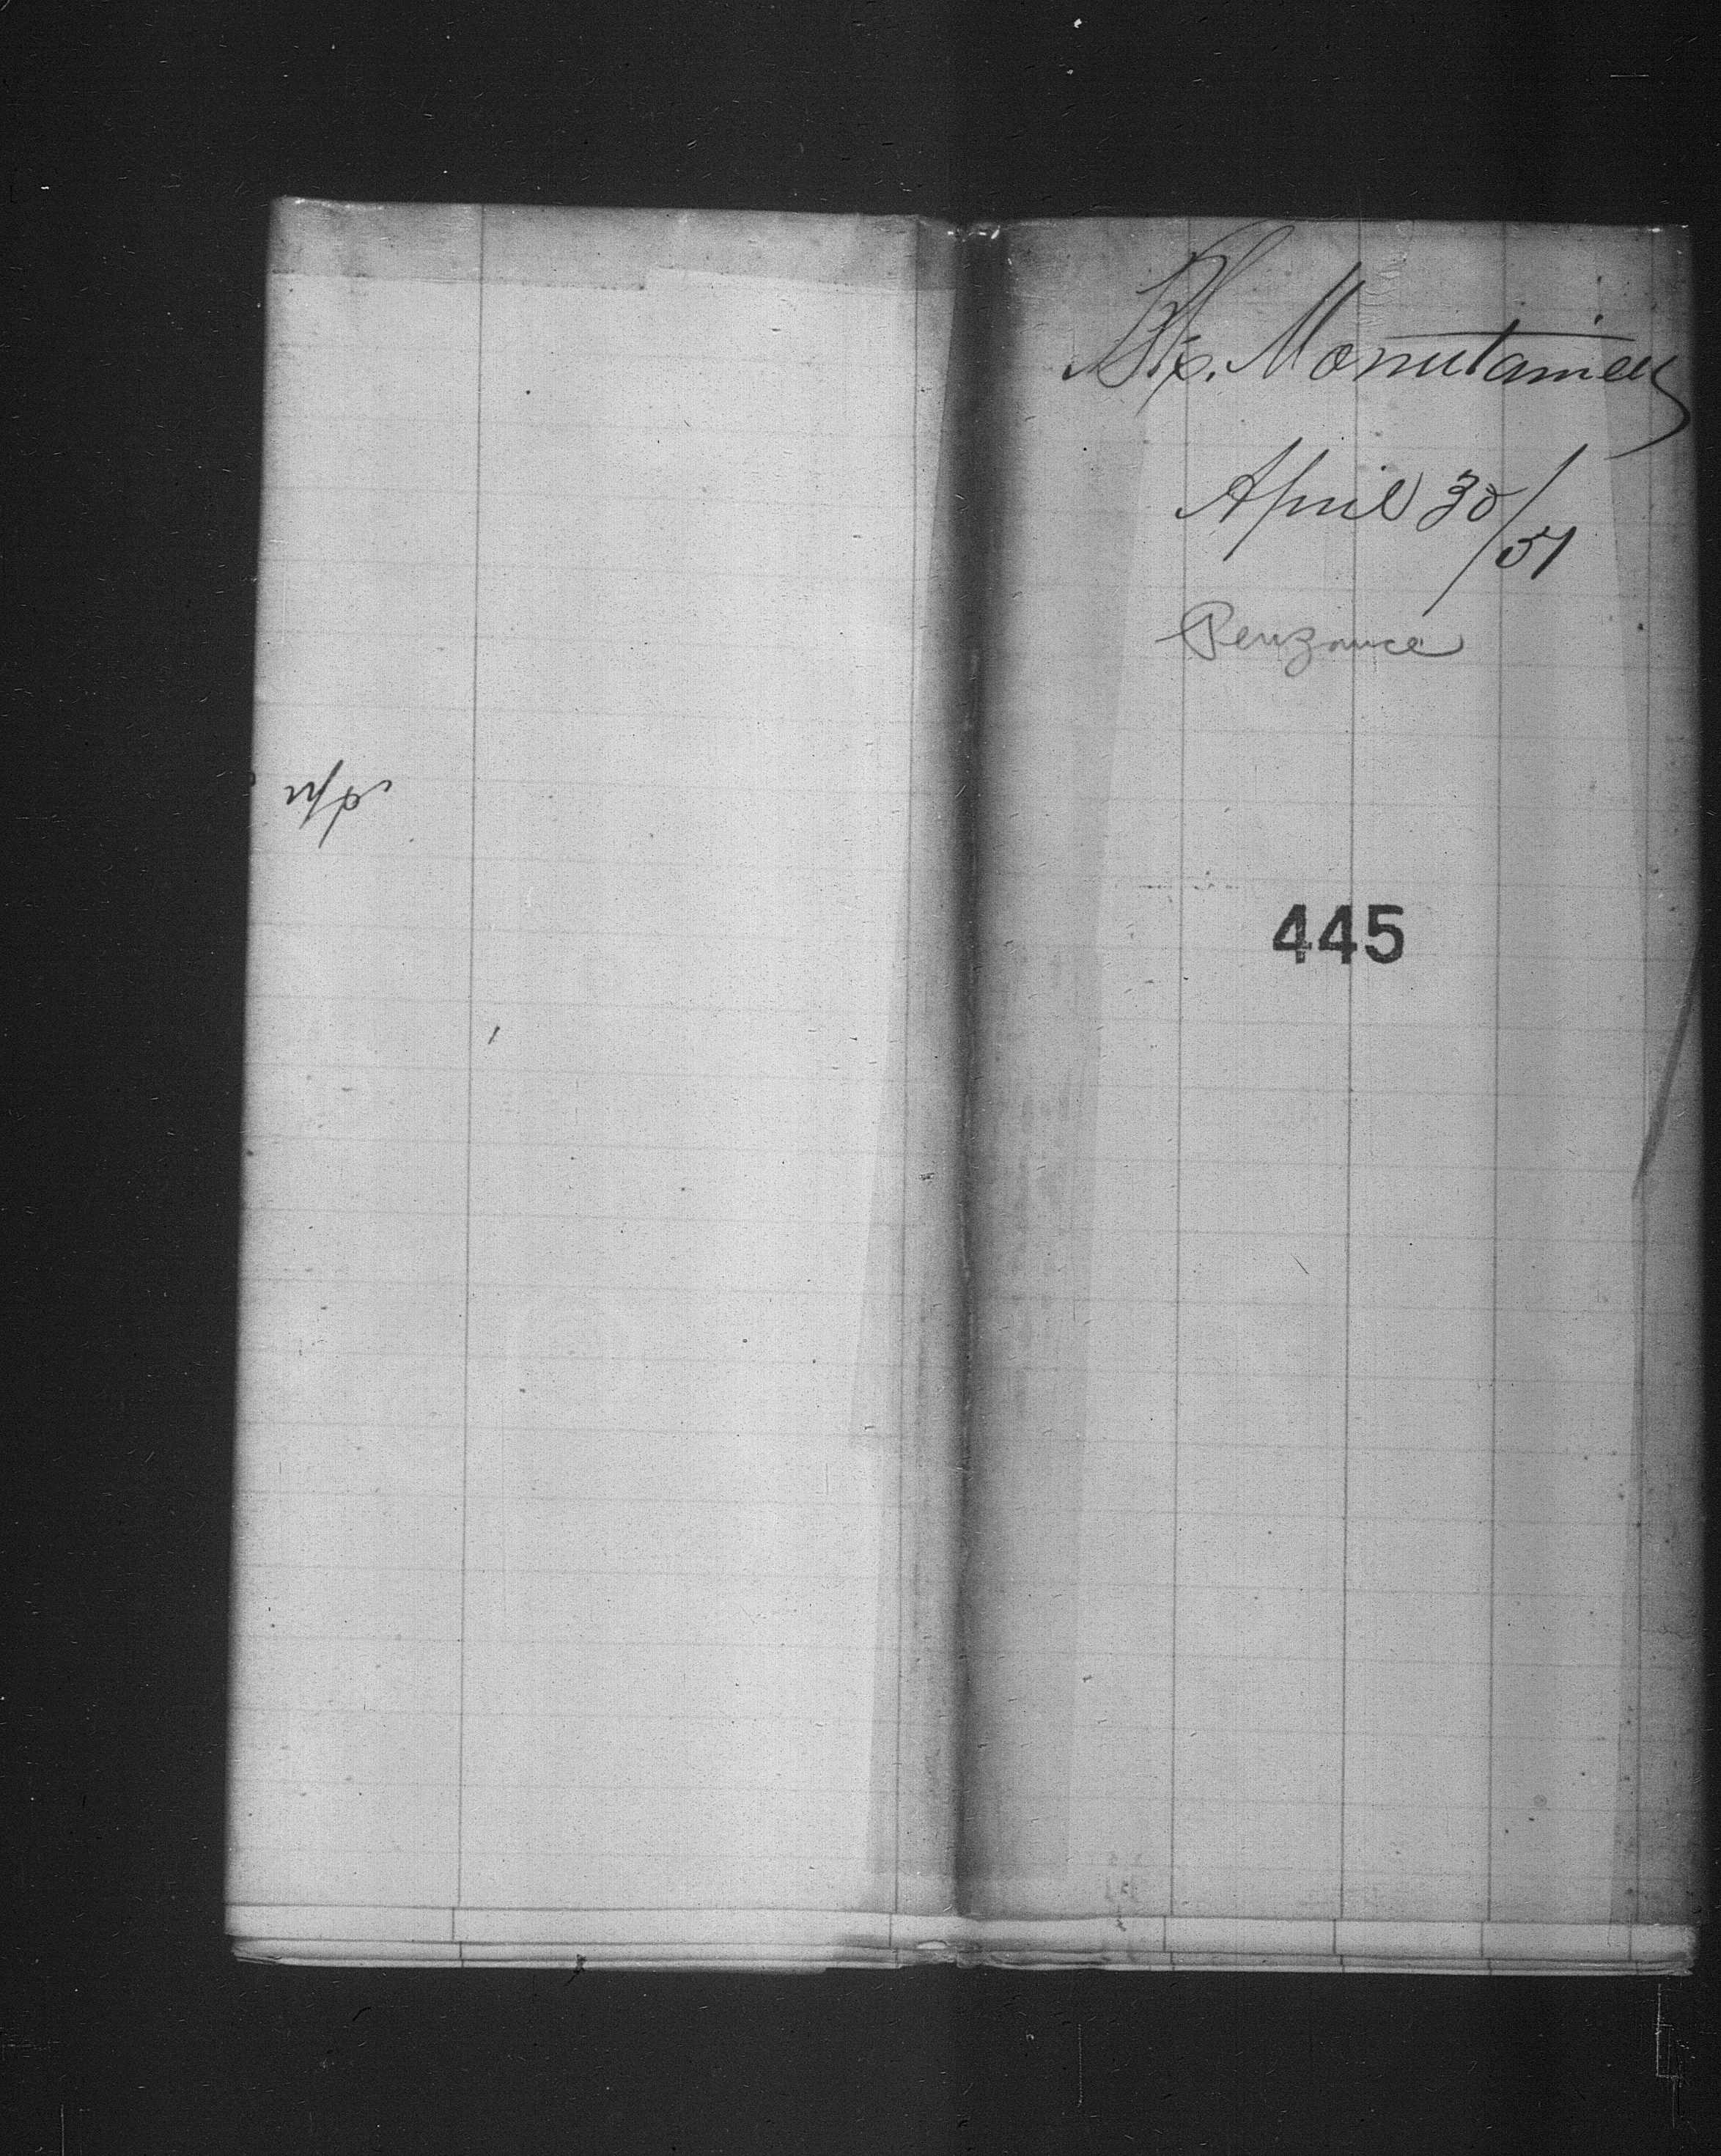 Bk. Mountaineer
April 30/51
Penzance
445